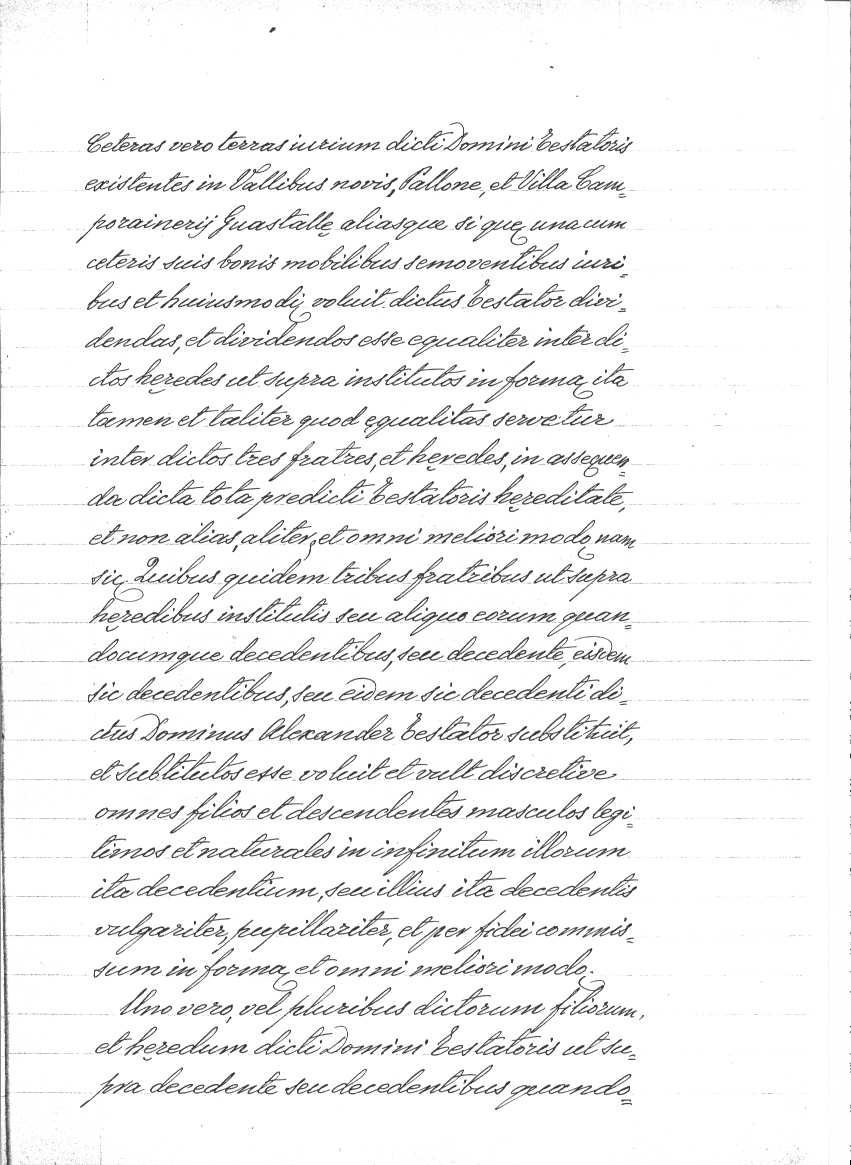 Ceteras vero terras iurium dicti Domini Testatoris
existentes in Vallibus novis, Pallone, et Villa Cam=
porainerij Guastallę aliasque si que, una cum
ceteris suis bonis mobilibus semoventibus iuri=
bus et huiusmodi, voluit dictus Testator divi=
dendas, et dividendos esse equaliter inter di=
ctos hęredes ut supra institutos in forma, ita
tamen et taliter quod ęqualitas servetur
inter dictos tres fratres, et hęredes, in assequen=
da dicta tota predicti Testatoris hęreditate,
et non alias, aliter, et omni meliori modo, nam
sic. Quibus quidem tribus fratribus ut supra
hęredibus institutis seu aliquo eorum quan=
documque decedentibus, seu decedente, eisdem
sic decedentibus, seu eidem sic decedenti di=
ctus Dominus Alexander Testator substituit,
et subtitutos esse voluit et vult discretive
omnes filios et descendentes masculos legi=
timos et naturales in infinitum illorum
ita decedentium, seu illius ita decedentis
vulgariter, pupillariter, et per fidei commis=
sum in forma, et omni meliori modo.
Uno vero, vel pluribus dictorum filiorum,
et hęredum dicti Domini Testatoris ut su=
pra decedente seu decedentibus quando=